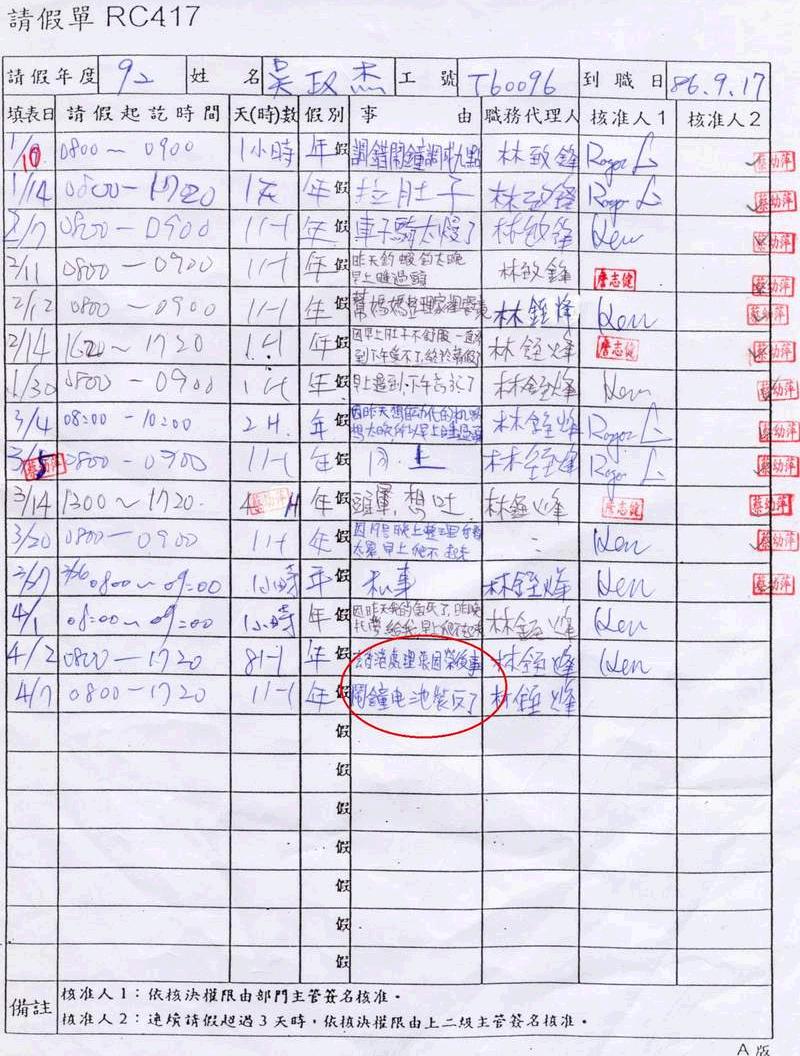 請假單 RC417
請假年度 92 姓名 吳政杰 工號 T60096 到職日 86.9.17
填表日 請假起訖時間 天(時)數 假別 事由 職務代理人 核准人1 核准人2
1/10 0800~0900 1小時 年假 調錯鬧鐘調成九點 林致鋒 Roger L 蔡幼萍
1/14 0800-1720 1天 年假 拉肚子 林致鋒 Roger L 蔡幼萍
2/7 0800-0900 1H 年假 車子騎太慢了 林致鋒 Ken 蔡幼萍
2/11 0800-0900 1H 年假 昨天釣蝦釣太晚
早上睡過頭 林致鋒 詹志健 蔡幼萍
2/12 0800-0900 1H 年假 幫媽媽整理家裡 林鉦烽 Ken 蔡幼萍
2/14 1620~1720 1H 年假 因早上肚子不舒服一直
到下午受不了,終於請假了 林鉦烽 詹志健 蔡幼萍
1/30 0800-0900 1H 年假 早上遲到下午 林鉦烽 Ken 蔡幼萍
3/4 08:00-10:00 2H. 年假 因昨天想
想太晚所以早上睡過頭 林鉦烽 Roger L 蔡幼萍
3/5 蔡幼萍 0800-0900 1H 年假 同.上 林鉦烽 Roger L 蔡幼萍
3/14 1300~1720. 4H 蔡幼萍 年假 頭暈,想吐 林鉦烽 詹志健 蔡幼萍
3/20 0800-0900 1H 年假 晚上整理
太累,早上爬不起來 Ken 蔡幼萍
3/27 3/26 0800~09:00 1小時 年假 私事 林鉦烽 Ken 蔡幼萍
4/1 08:00~09:00 1小時 年假 因昨天 林鉦烽 Ken
4/2 0800-1720 8H 年假 去香港處理張國榮後事 林鉦烽 Ken
4/7 0800-1720 1H 年假 鬧鐘电池裝反了 林鉦烽
假
假
假
假
假
假
假
備註 核准人1:依核決權限由部門主管簽名核准。
核准人2:連續請假超過3天時,依核決權限由上二級主管簽名核准。
A版